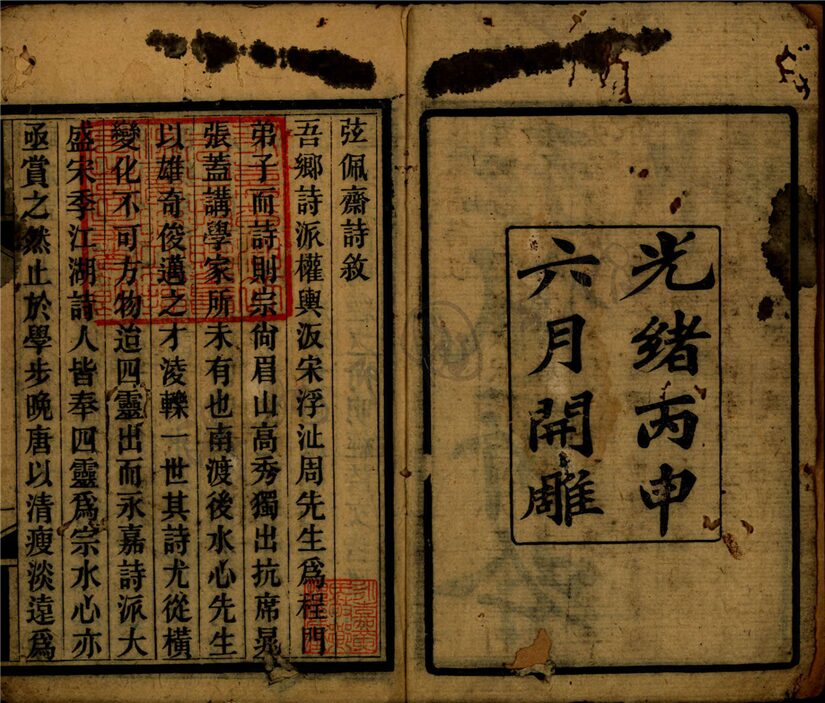 光緒丙申
六月開雕
弦佩齋詩敘
吾鄉詩派權輿汳宋浮沚周先生爲程門
弟子而詩則宗尙眉山高秀獨出抗席晁
張蓋講學家所未有也南渡後水心先生
以雄奇俊邁之才淩轢一世其詩尤從橫
變化不可方物迨四靈出而永嘉詩派大
盛宋季江湖詩人皆奉四靈爲宗水心亦
亟賞之然止於學步晚唐以清瘦淡遠爲